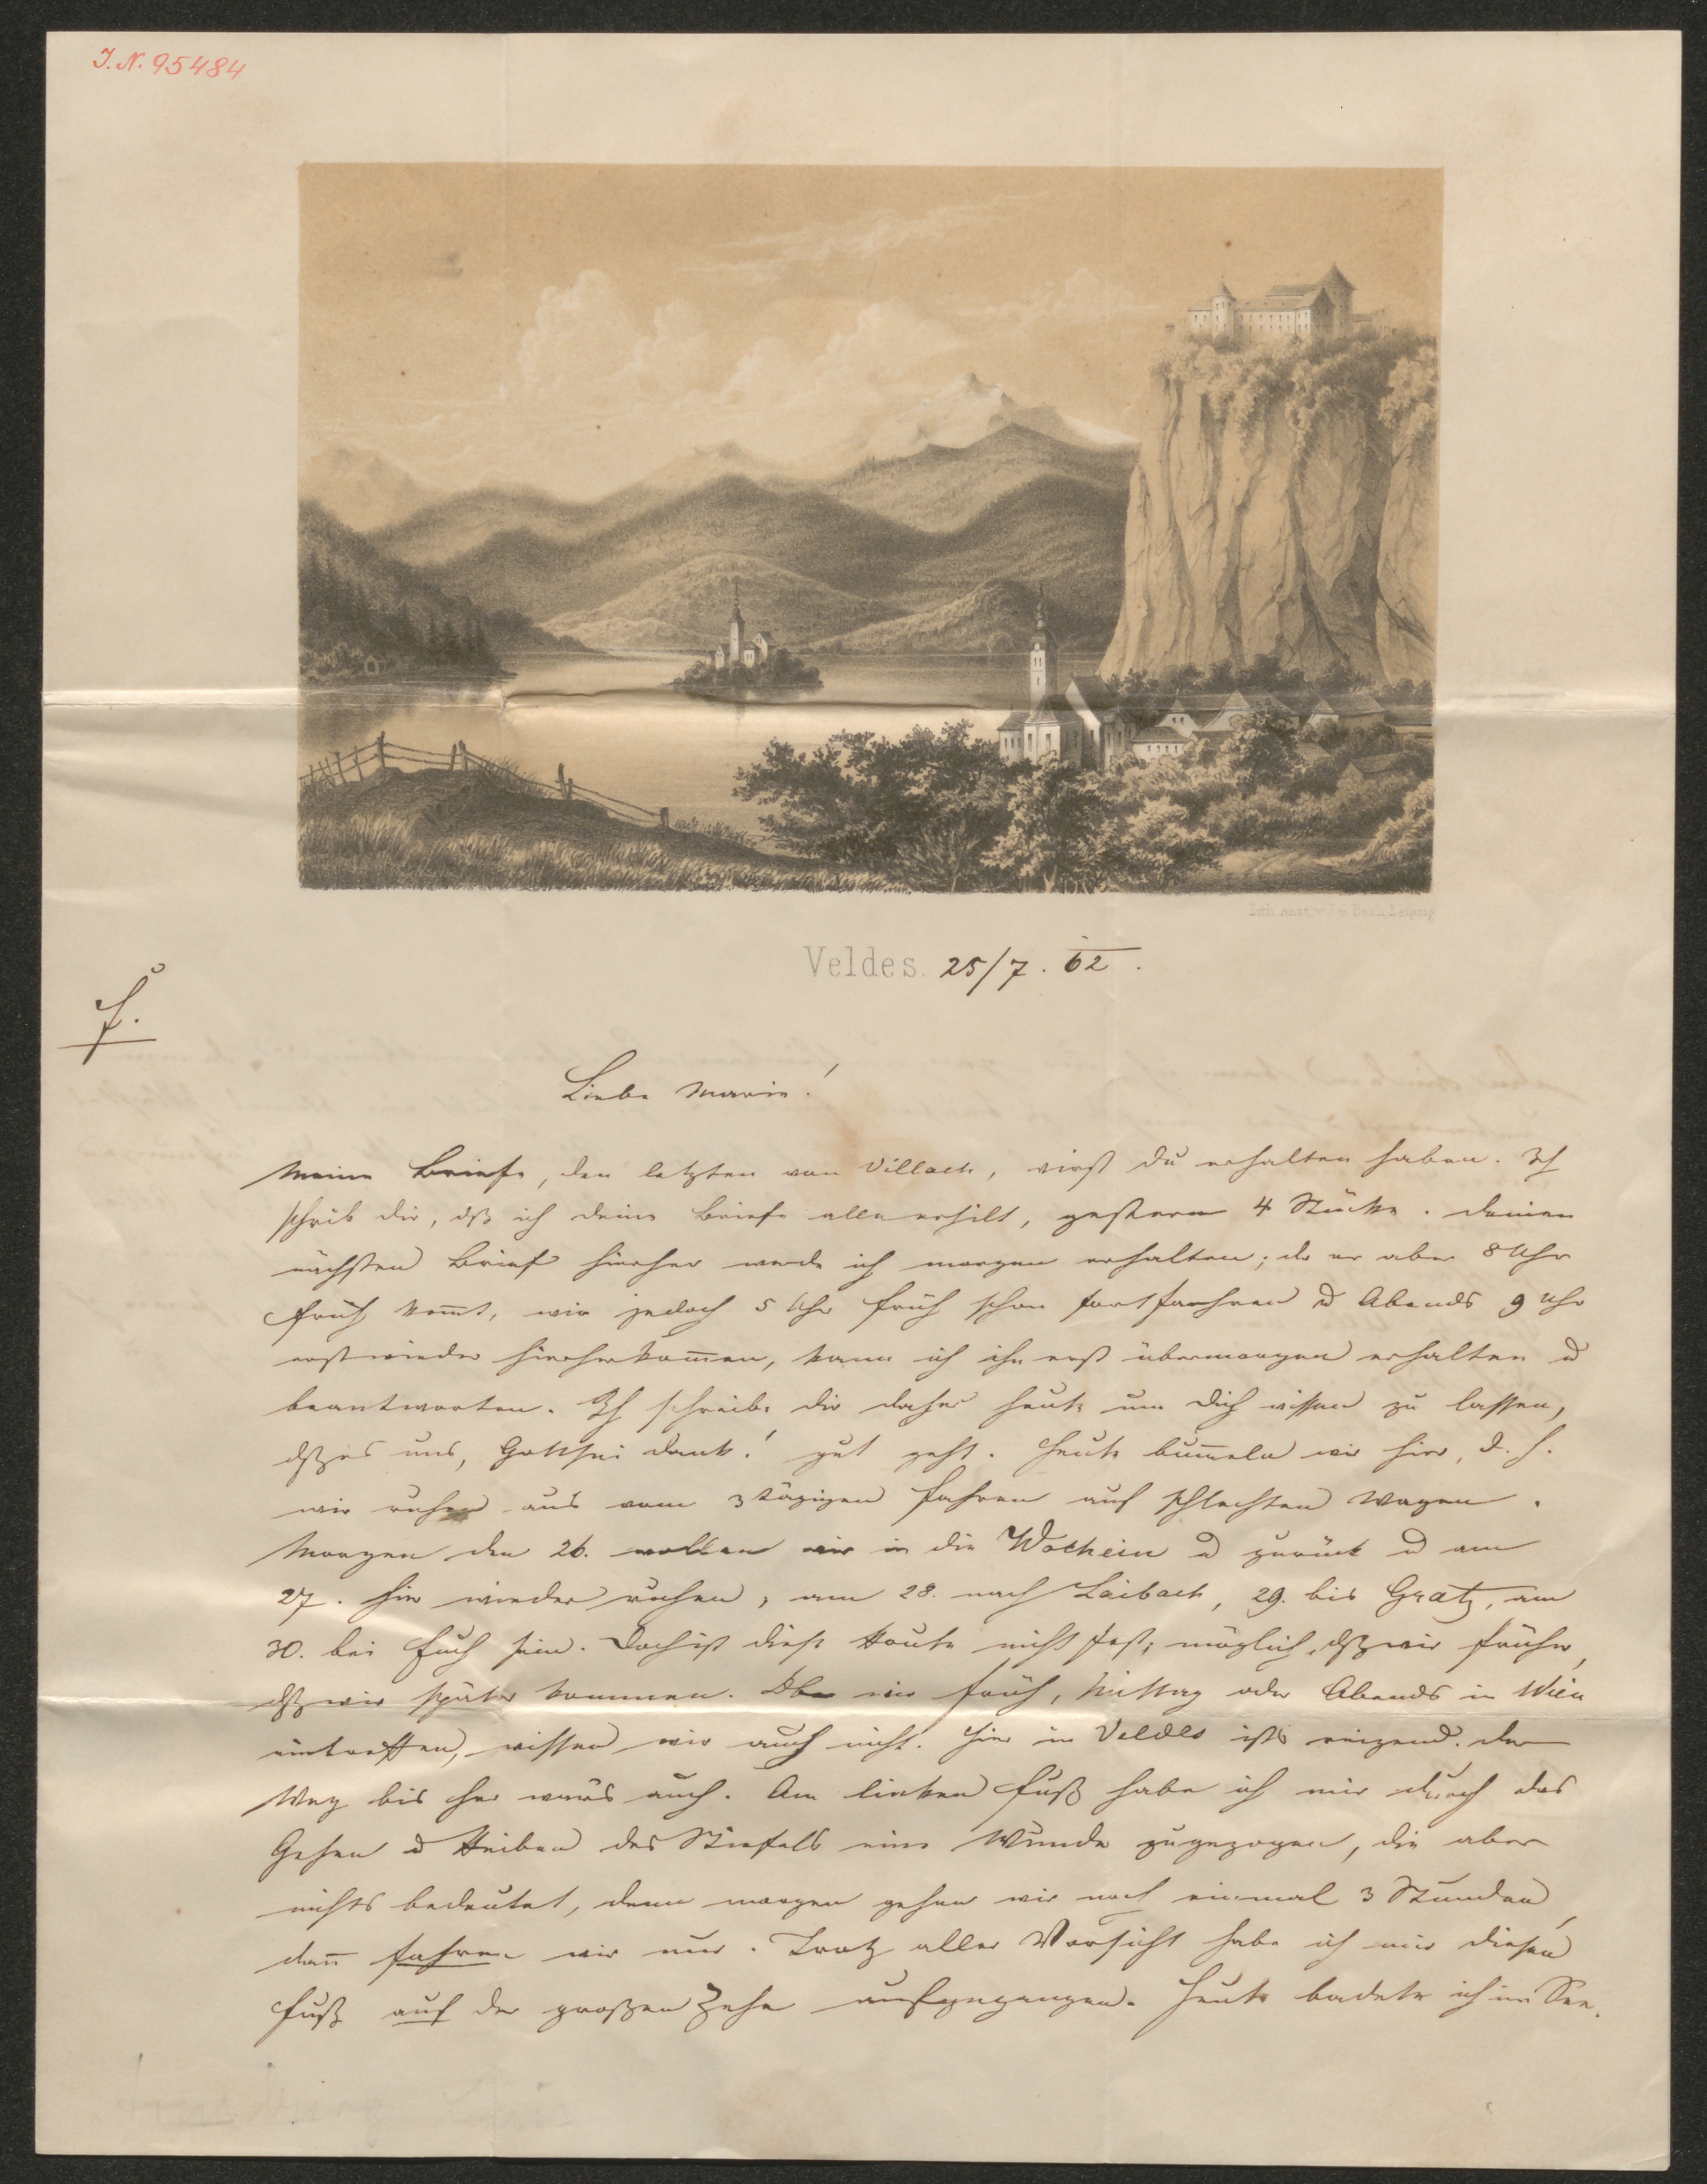 I. N. 95484
Lith. Anst. v. J. G. Bach, Leipzig
Veldes. 25/7. 62.
f.
Liebe Marie!
Meine Briefe, den letzten von Villach, wirst du erhalten haben. Ich
schrieb dir, dß ich deine Briefe alle erhielt, gestern 4 Stücke. Deinen
nächsten Brief hierher werde ich morgen erhalten; da er aber 8 Uhr
früh komt, wir jedoch 5 Uhr früh schon fortfahren u Abends 9 Uhr
erst wieder hierherkomen, kann ich ihn erst übermorgen erhalten u
beantworten. Ich schreibe dir daher heute um dich wissen zu lassen,
dß es uns, Gott sei Dank! gut geht. Heute bumeln wir hier, d. h.
wir ruhen aus vom 3 tägigen Fahren auf schlechten Wagen.
Morgen den 26. wollen wir in die Wochein u zurück u am
27. hier wieder ruhen, am 28. nach Laibach, 29. bis Gratz, am
30. bei Euch sein. Doch ist diese Route nicht fest; möglich, dß wir früher,
dß wir später kommen. Ob wir früh, Mittag oder Abends in Wien
eintreffen, wissen wir auch nicht. Hier in Veldes ists reizend. Der
Weg bis her wars auch. Am linken Fuß habe ich mir durch das
Gehen u Reiben des Stiefels eine Wunde zugezogen, die aber
nichts bedeutet, denn morgen gehen wir noch einmal 3 Stunden,
dan fahren wir nur. Trotz aller Vorsicht habe ich mir diesen
Fuß auf der großen Zehe aufgegangen. Heute badete ich im See.